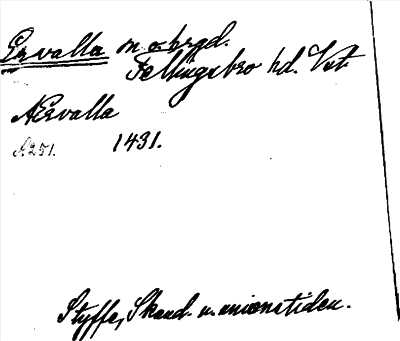 Ervalla sn o. brgd.
Fellingsbro hd. Vstm
Aervalla
A251. 1431.
Styffe, Skand. u. unionstiden.